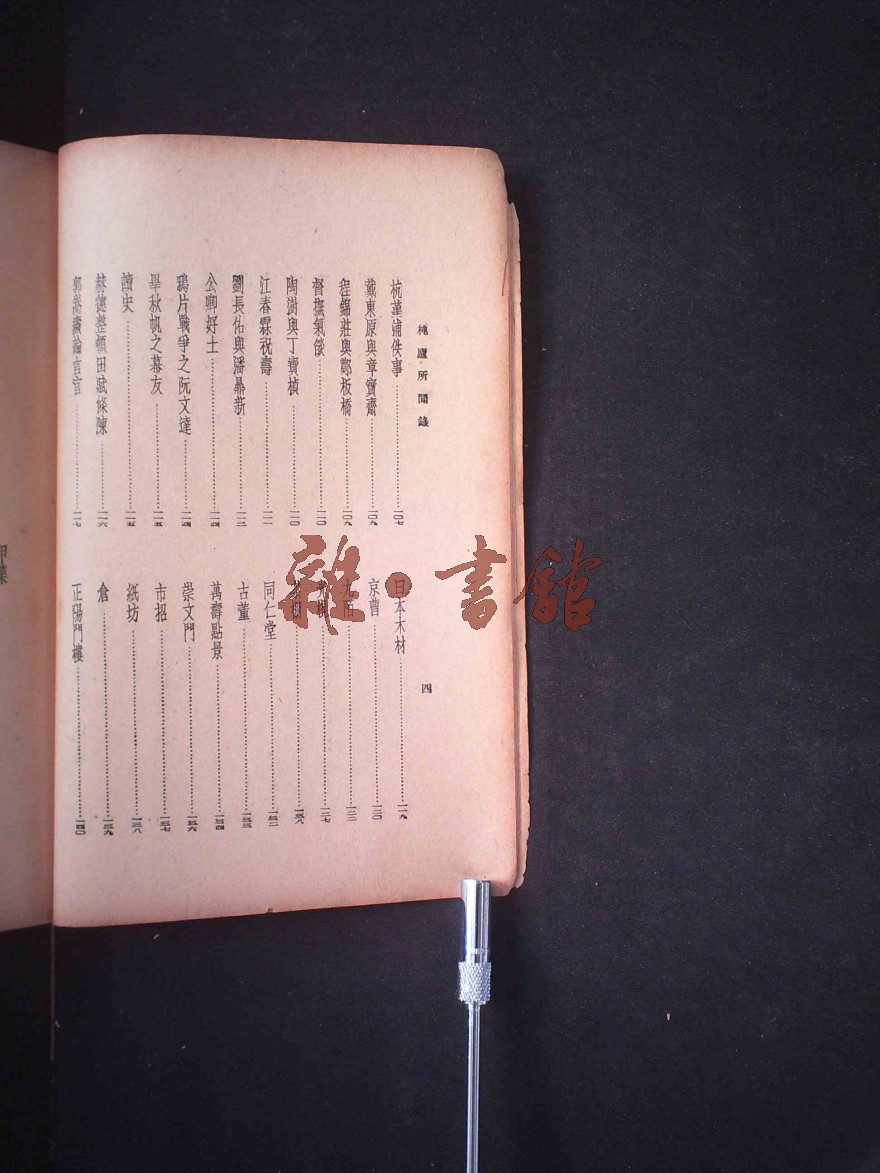 梵廬所聞錄
四
杭堇浦佚事……一〇七
戴東原與章實齋……一〇九
程錦莊與鄭板橋……一〇九
督撫氣燄……一一〇
陶澍與丁寶楨……一一〇
江春霖祝壽……一一一
劉長佑與潘鼎新……一一二
公卿好士……一一四
鴉片戰爭之阮文達……一一四
畢秋帆之幕友……一一五
讀史……一一五
赫德整頓田賦條陳……一一六
郭嵩燾論言官……一一七
日本木材……一一九
京曹……一二〇
九陌……一二二
……一二七
……一二八
同仁堂……一三二
古董……一三三
萬壽點景……一三四
崇文門……一三六
市招……一三七
紙坊……一三八
倉……一三九
正陽門樓……一四〇
雜·書館